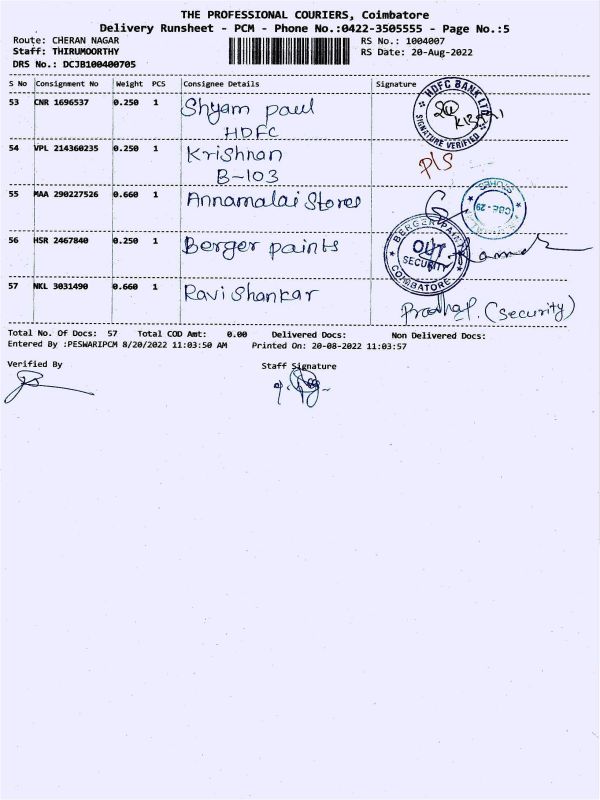 THE PROFESSIONAL COURIERS, Coimbatore
Delivery Runsheet - PCM - Phone No.:0422-3505555 - Page No.:5
Route: CHERAN NAGAR RS No.: 1004007
Staff: THIRUMOORTHY RS Date: 20-Aug-2022
DRS No.: DCJB100400705
S No Consignment No Weight PCS Consignee Details Signature
53 CNR 1696537 0.250 1 Shyam paul
HDFC
HDFC BANK LTD
SIGNATURE VERIFIED
54 VPL 214360235 0.250 1 Krishnan P/S
B-103
55 MAA 290227526 0.660 1 Annamalai Stores
STORES
CBE - 29
56 HSR 2467840 0.250 1 Berger paints
BERGER PAINTS
OUT
SECURITY
COIMBATORE
57 NKL 3031490 0.660 1 Ravi Shankar
(Security)
Total No. Of Docs: 57 Total COD Amt: 0.00 Delivered Docs: Non Delivered Docs:
Entered By :PESWARIPCM 8/20/2022 11:03:50 AM Printed On: 20-08-2022 11:03:57
Verified By Staff Signature